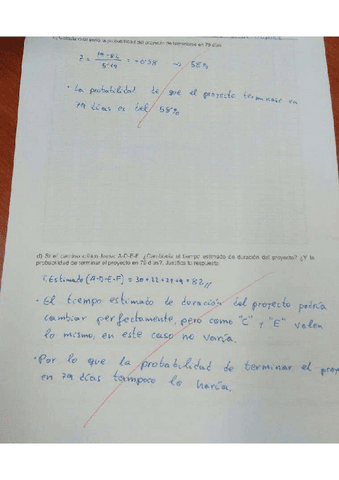 probabilidad del proyecto de terminarse en 79 días
Z = 79-82 / 5'14 = -0'58 → 58%
· La probabilidad de que el proyecto terminase en
79 días es del 58%
d) Si el camino crítico fuese: A-C-E-F. ¿Cambiaría el tiempo estimado de duración del proyecto? ¿Y la
probabilidad de terminar el proyecto en 79 días?. Justifica tu respuesta.
T. Estimado (A-C-E-F) =
· El tiempo estimado de duración del proyecto podría
cambiar perfectamente, pero como "C" y "E" valen
lo mismo, en este caso no varía.
· Por lo que la probabilidad de terminar el proy
en 79 días tampoco lo haría.